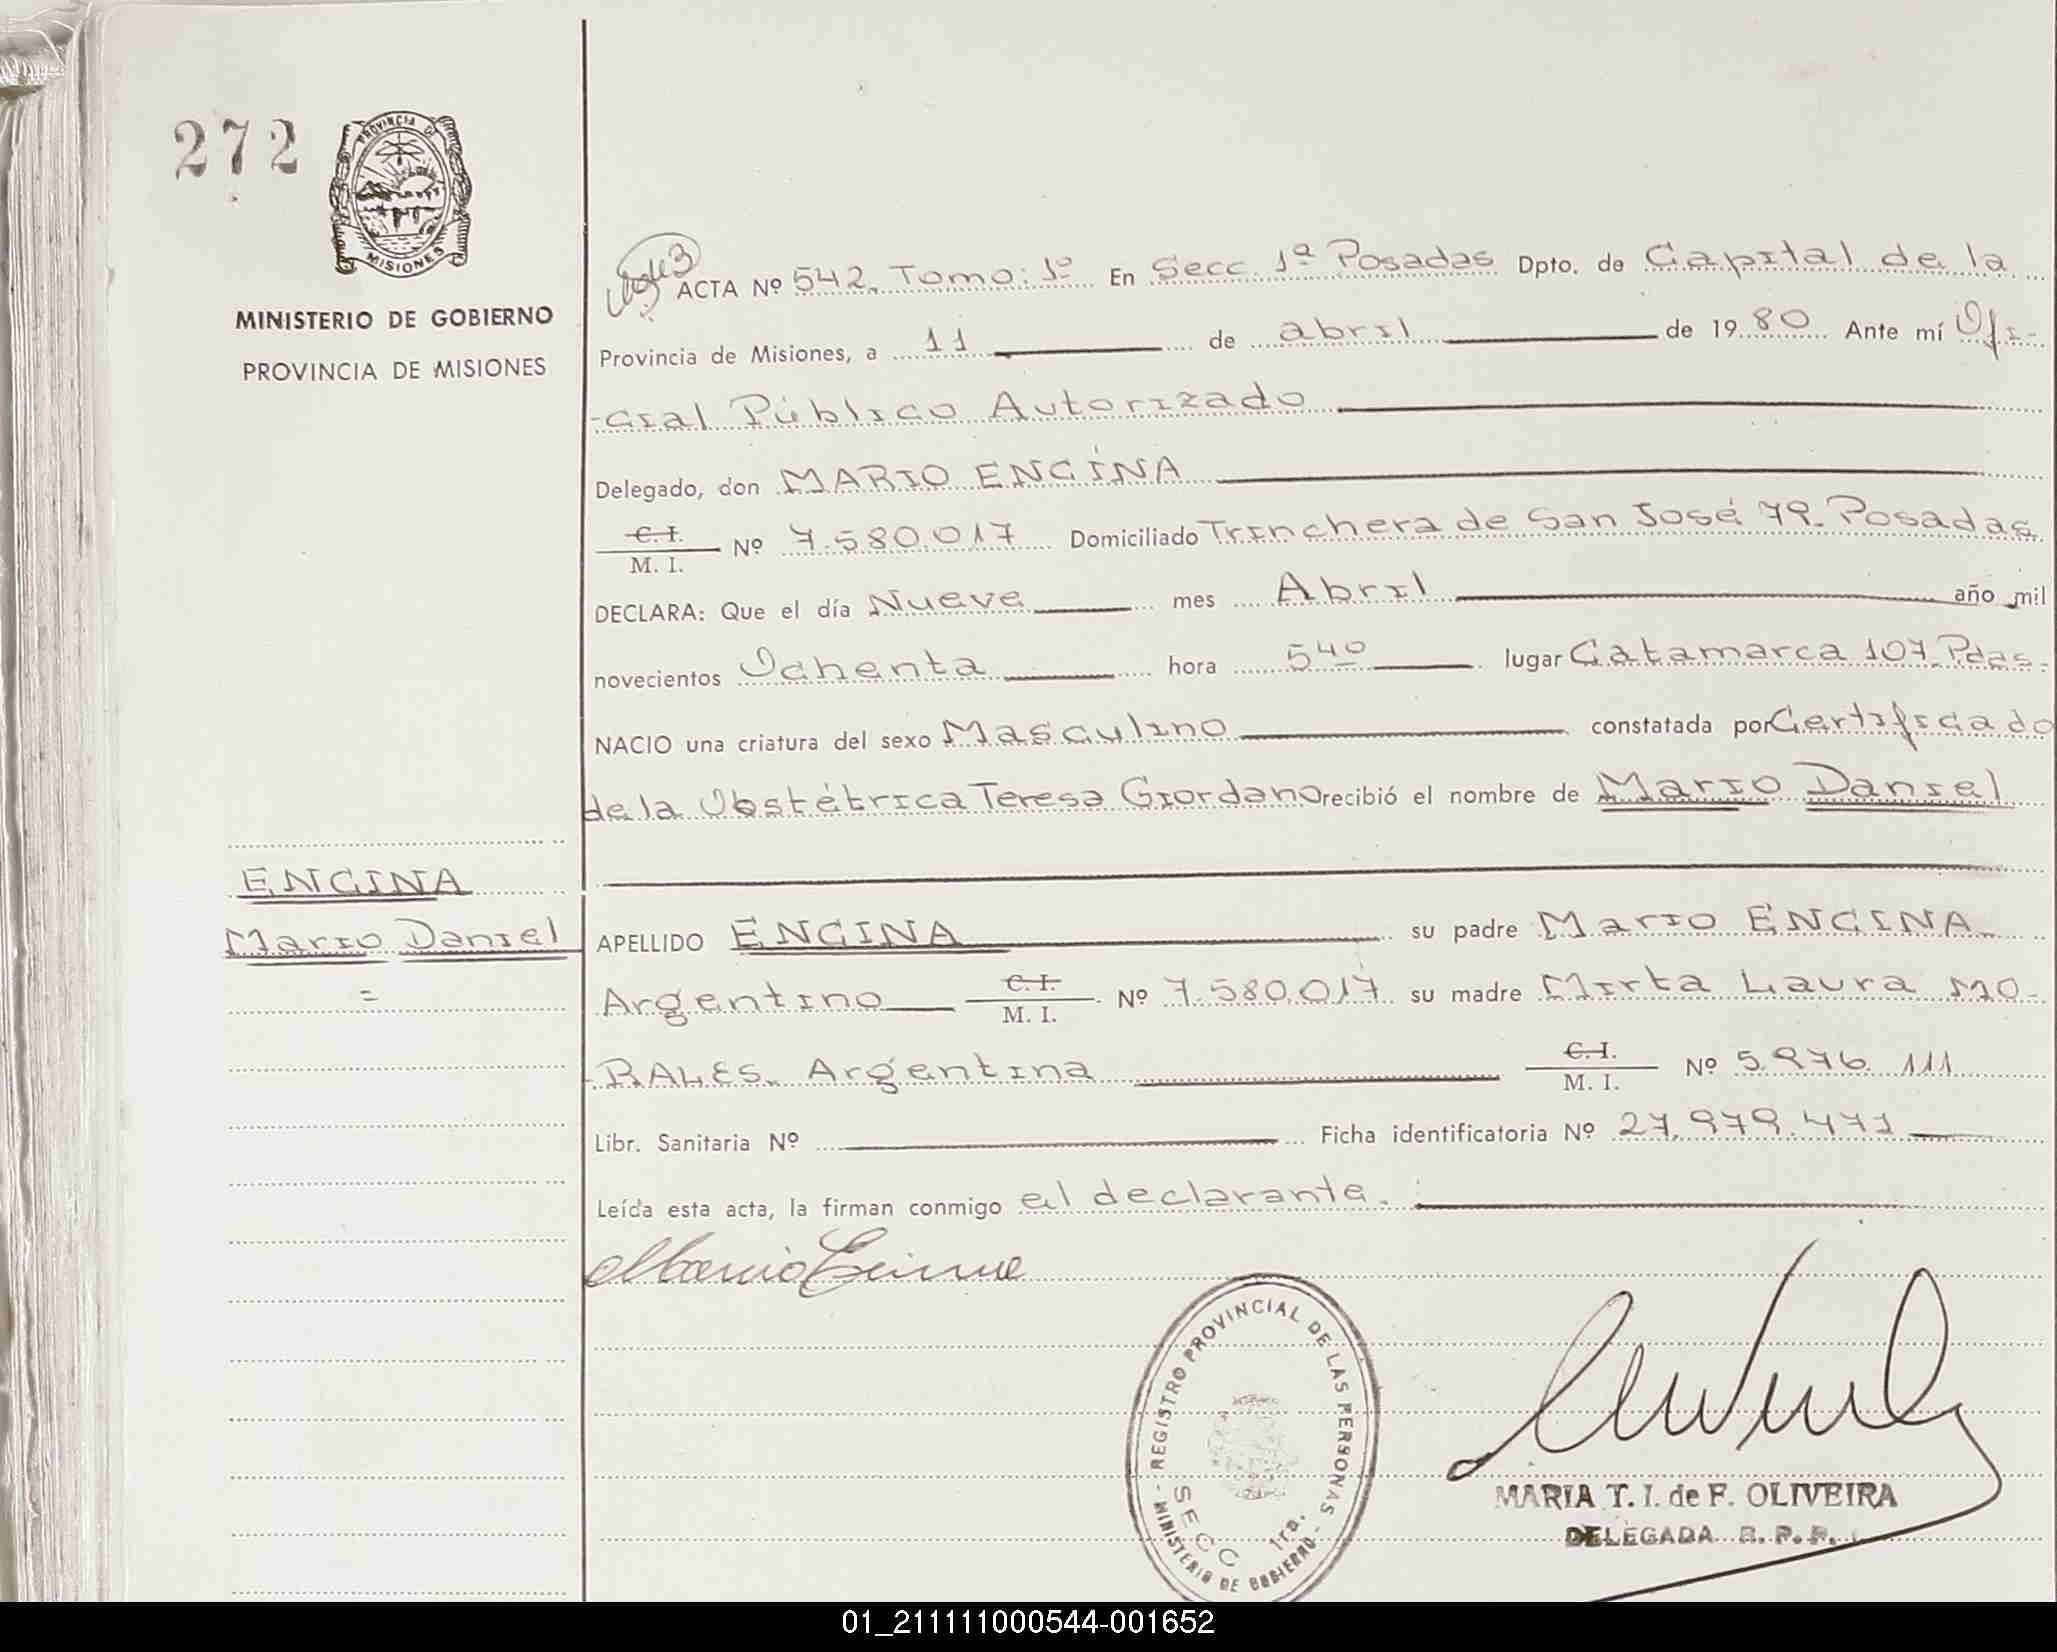 272
PROVINCIA DE
MISIONES
MINISTERIO DE GOBIERNO
PROVINCIA DE MISIONES
ENCINA
Mario Daniel
=
ACTA Nº 542. Tomo: 1º En Secc. 1ª Posadas Dpto. de Capital de la
Provincia de Misiones, a 11 de abril de 1980 Ante mí Ofi-
-cial Público Autorizado
Delegado, don MARIO ENCINA
C.I.
M. I. Nº 7.580.017 Domiciliado Trinchera de San José 79. Posadas
DECLARA: Que el día Nueve mes Abril año mil
novecientos Ochenta hora 5 40 lugar Catamarca 107. Pdas.
NACIO una criatura del sexo Masculino constatada por Certificado
de la Obstétrica Teresa Giordano recibió el nombre de Mario Daniel
APELLIDO ENCINA su padre Mario ENCINA
Argentino C.I. M. I. Nº 7.580.017 su madre Mirta Laura MO-
RALES. Argentina C.I. M. I. Nº 5.976.111
Libr. Sanitaria Nº Ficha identificatoria Nº 27.979.471
Leída esta acta, la firman conmigo el declarante.
REGISTRO PROVINCIAL DE LAS PERSONAS
MINISTERIO DE GOBIERNO
SECC 1ra.
MARIA T. I. de F. OLIVEIRA
DELEGADA R. P. P.
01_211111000544-001652